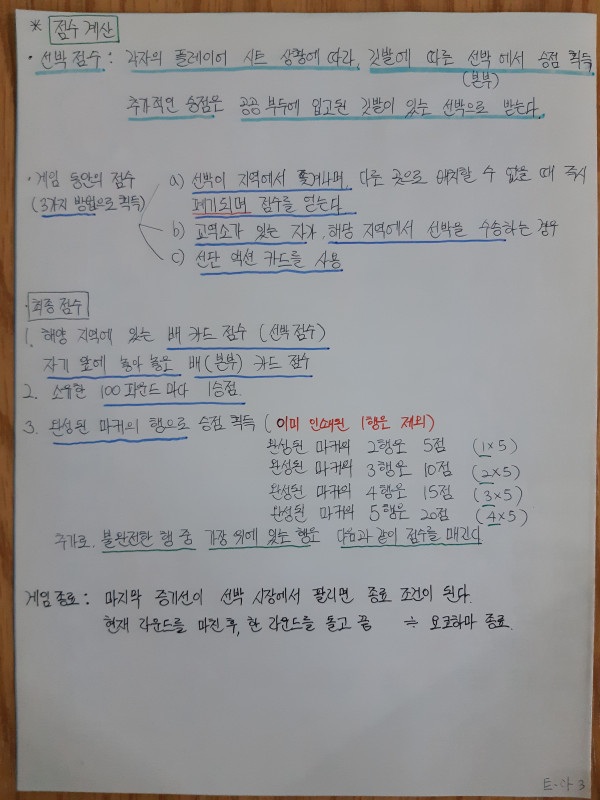 * 점수 계산
· 선박 점수 : 각자의 플레이어 시트 상황에 따라, 깃발에 따른 선박에서 승점 획득
(본부)
추가적인 승점은 공공 부두에 입고된 깃발이 있는 선박으로 받는다.
· 게임 동안의 점수
(3가지 방법으로 획득)
a) 선박이 지역에서 쫓겨나며, 다른 곳으로 배치할 수 없을 때 즉시
폐기되며 점수를 얻는다.
b) 교역소가 있는 자가, 해당 지역에서 선박을 수송하는 경우
c) 선단 액션 카드를 사용
· 최종 점수
1. 해양 지역에 있는 배 카드 점수 (선박점수)
자기 앞에 놓아 놓은 배(본부) 카드 점수
2. 소유한 100파운드 마다 1승점.
3. 완성된 마커의 행으로 승점 획득 (이미 인쇄된 1행은 제외)
완성된 마커의 2행은 5점 (1×5)
완성된 마커의 3행은 10점 (2×5)
완성된 마커의 4행은 15점 (3×5)
완성된 마커의 5행은 20점 (4×5)
추가로, 불완전한 행 중 가장 위에 있는 행은 다음과 같이 점수를 매긴다
게임 종료 : 마지막 증기선이 선박 시장에서 팔리면 종료 조건이 된다.
현재 라운드를 마친 후, 한 라운드를 돌고 끝 ≒ 요코하마 종료.